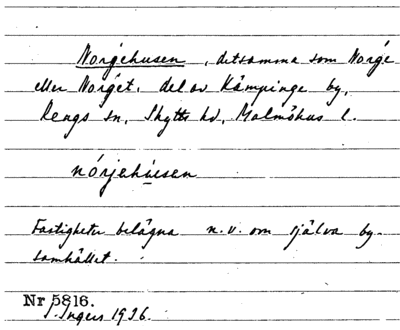 Norgehusen, detsamma som Norge
eller Norget, del av Kämpinge by,
Rengs sn, Skytts hd, Malmöhus l.
nórjehùsen
Fastigheter belägna n.v. om själva by-
samhället.
Nr 5816.
Ingers 1936.